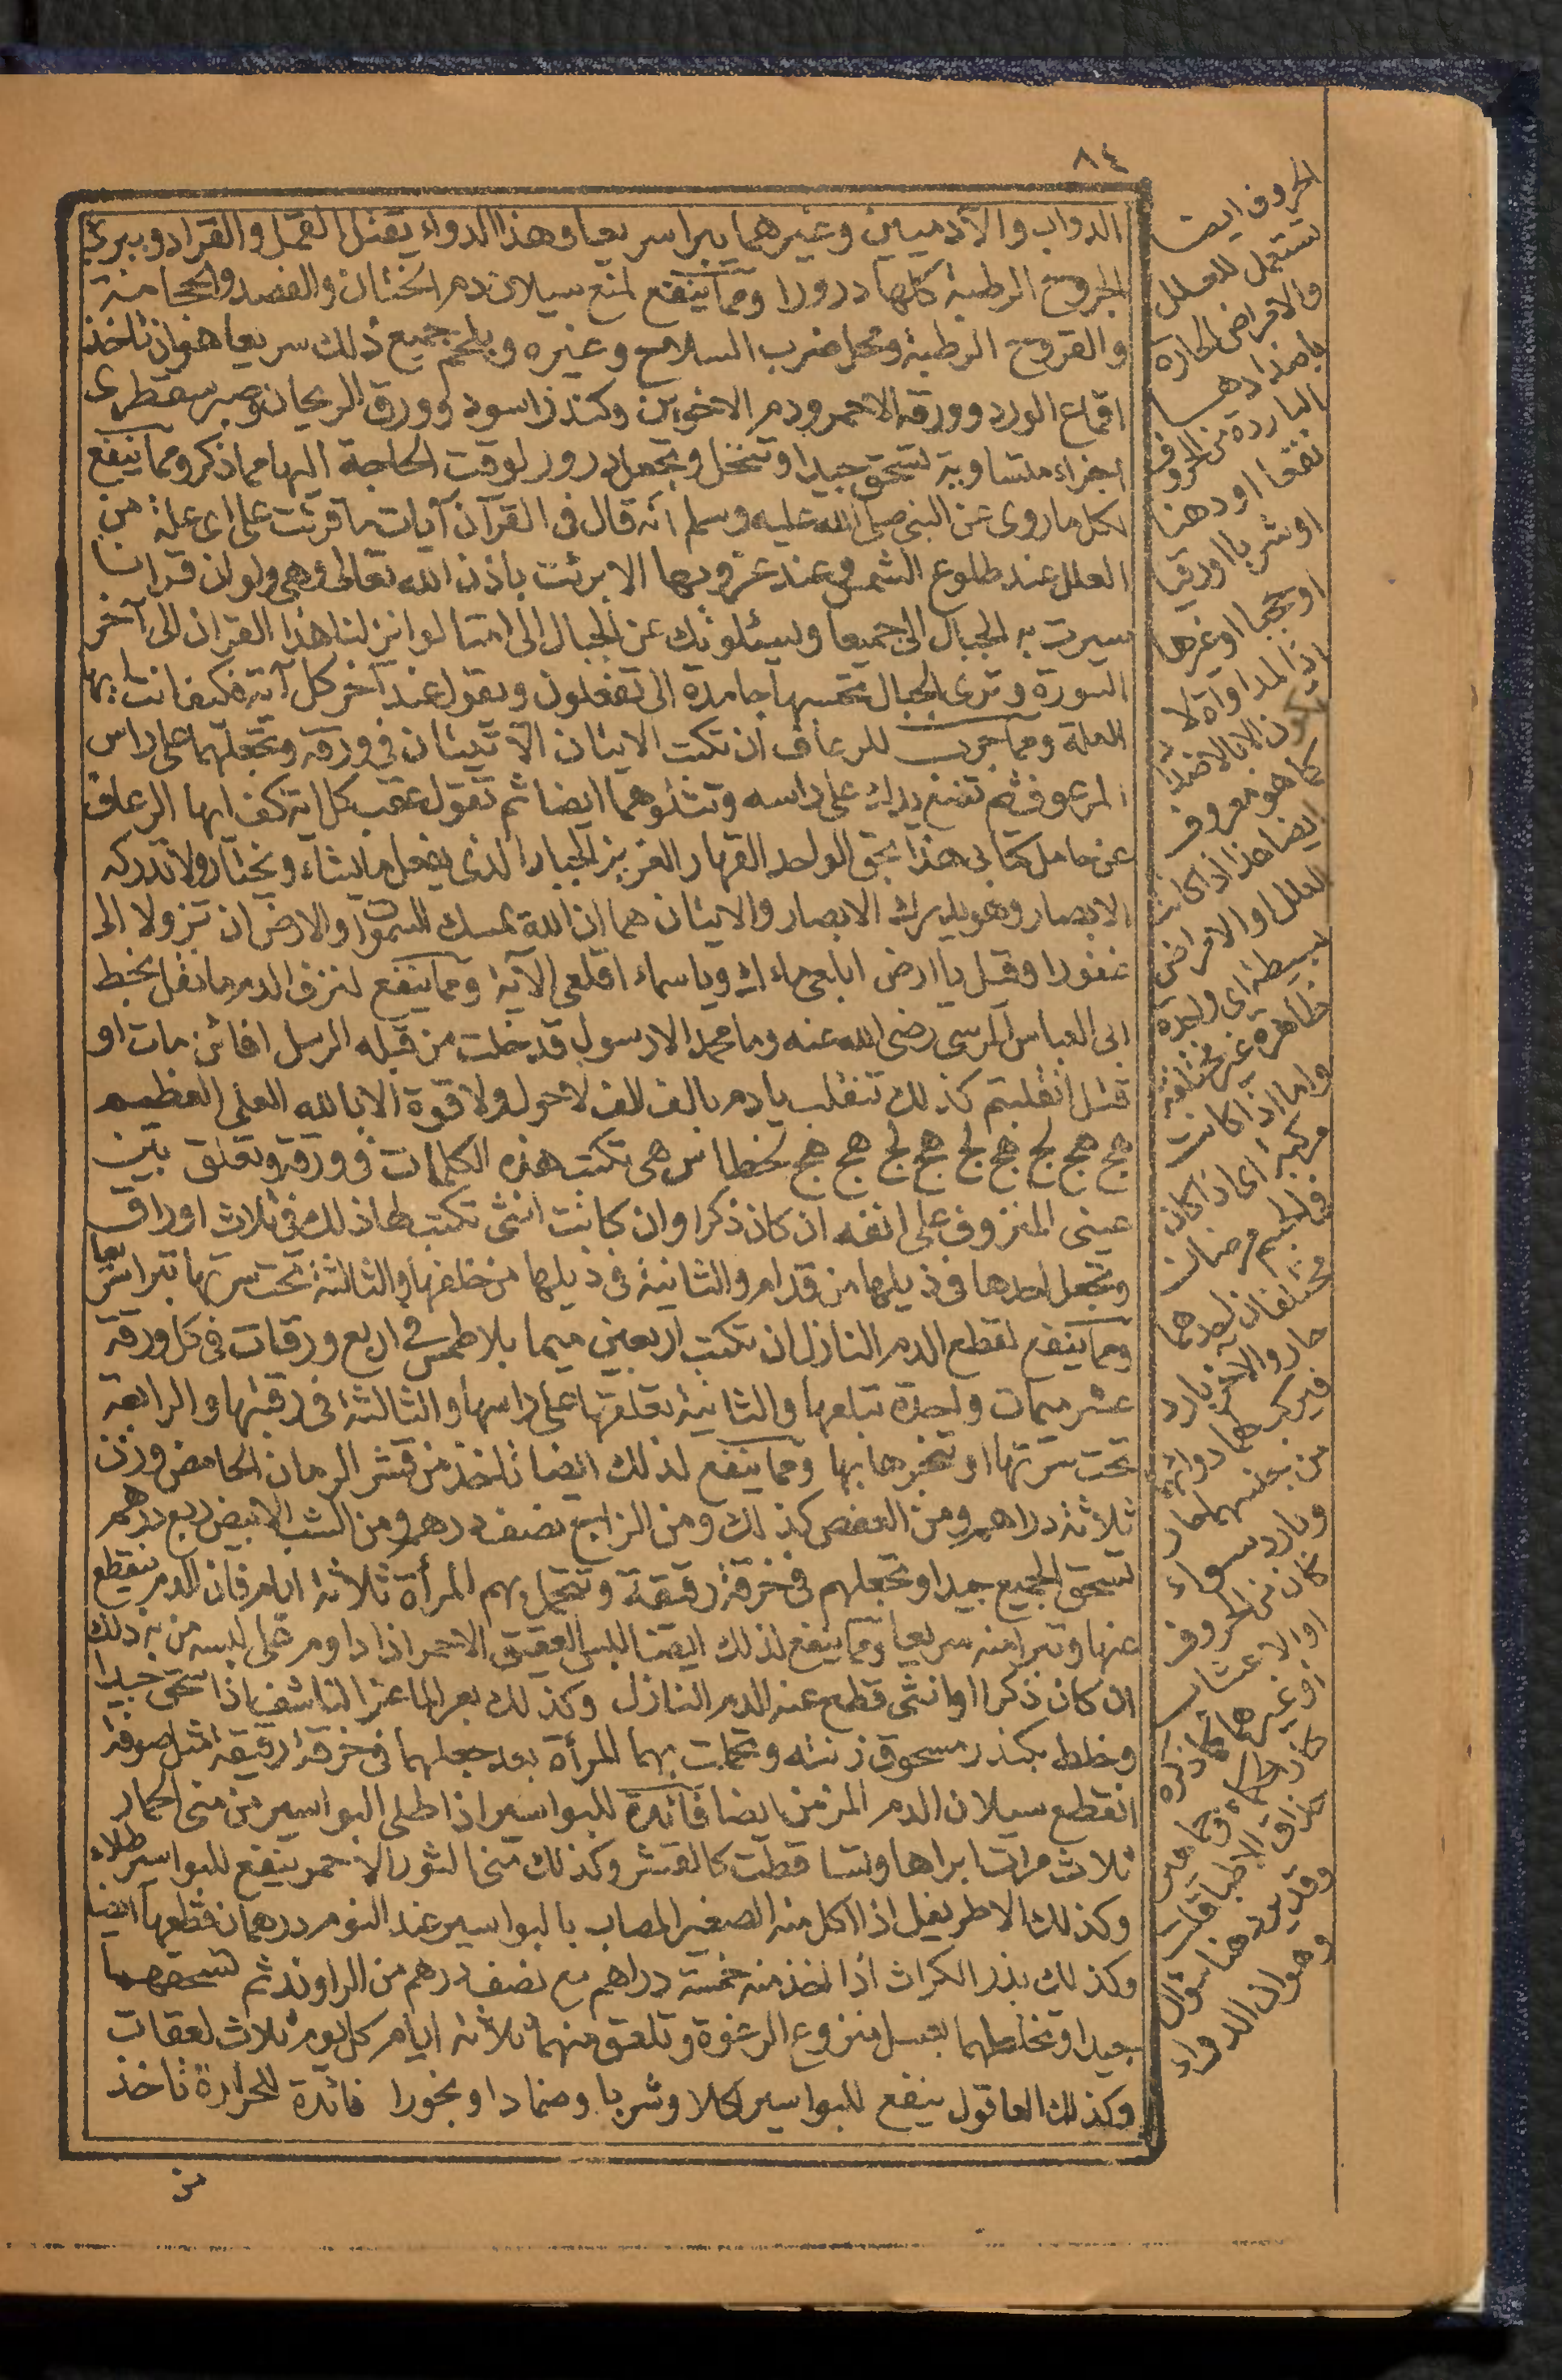 ٨٤
الدواب والآدميين وغيرهما يبرا سريعا وهذا الدواء يقتل القمل والقراد ويبري
الجروح الرطبة كلها درورا ومما ينفع لمنع سيلان دم الختان والفصد والحجامة
والقروح الرطبة ومحل ضرب السلاح وغيره ويلحم جميع ذلك سريعا هو ان تاخذ
اقماع الورد وورقه الاحمر ودم الاخوين وكندر اسود وورق الريحان وصبر سقطرى
اجزاء متساوية تسحق جيدا وتنخل وتجعل درور لوقت الحاجة اليها مما ذكر ومما ينفع
لكل ما روى عن النبي صلى الله عليه وسلم انه قال في القرآن آيات ما قرئت على اى علة من
العلل عند طلوع الشمس وعند غروبها الا برئت باذن الله تعالى وهي ولو ان قرانا
سيرت به الجبال الى جميعا ويسئلونك عن الجبال الى امتا لو انزلنا هذا القران الى آخر
السورة وترى الجبال تحسبها جامدة الى تفعلون ويقول عند آخر كل آية فكيف انت ايتها
العلة ومما جرب للرعاف ان تكتب الايتان الآتيتان في ورقة وتجعلهما على راس
المرعوف ثم تضع يدك على راسه وتتلوهما ايضا ثم تقول عقب كل اية كف ايها الرعاف
عن حامل كتابي هذا بحق الواحد القهار العزيز الجبار الذى يفعل ما يشاء ويختار ولا تدركه
الابصار وهو يدرك الابصار والايتان هما ان الله يمسك السموات والارض ان تزولا الى
غفورا وقيل يا ارض ابلعي ماءك ويا سماء اقلعي الآية ومما ينفع لنزف الدم ما نقل بخط
ابى العباس المرسى رضى الله عنه وما محمد الا رسول قد خلت من قبله الرسل افائن مات او
قتل انقلبتم كذلك تنقلب يا دم بالف الف لا حول ولا قوة الا بالله العلي العظيم
هج هج لج هج لج هج لج هج هج بخطا س هى تكتب هذه الكلمات في ورقة وتعلق بين
عينى المنزوف على انفه ان كان ذكرا وان كانت انثى تكتب لها ذلك في ثلاث اوراق
وتجعل احدها في ذيلها من قدام والثانية في ذيلها من خلفها والثالثة تحت سرتها تبرا سريعا
ومما ينفع لقطع الدم النازل ان تكتب اربعين ميما بلا طمس في اربع ورقات في كل ورقة
عشر ميمات واحدة تبلعها والثانية تعلقها على راسها والثالثة في رقبتها والرابعة
تحت سرتها او تبخرها بها ومما ينفع لذلك ايضا تاخذ من قشر الرمان الحامض وزن
ثلاثة دراهم ومن العفص كذلك ومن الزاج نصف درهم ومن الشب الابيض ربع درهم
تسحق الجميع جيدا وتجعلهم في خرقة رقيقة وتتحمل بهم المرأة ثلاثة ايام فان الدم ينقطع
عنها وتبرا منه سريعا ومما ينفع لذلك ايضا للبس العقيق الاحمر اذا داوم على لبسه من به ذلك
ان كان ذكرا او انثى قطع عنه الدم النازل وكذلك بعر الماعز الناشف اذا سحق جيدا
وخلط بكندر مسحوق زنته وتحملت بهما المرأة بعد جعلهما في خرقة رقيقة مثل صوفة
انقطع سيلان الدم المزمن ايضا فائدة للبواسير اذا طلى البواسير من مخ الحمار
ثلاث مرات ابراها وتساقطت كالقشر وكذلك مخ الثور الاحمر ينفع للبواسير طلاء
وكذلك الاطريفل اذا اكل منه الصغير المصاب بالبواسير عند النوم درهمان قطعها ايضا
وكذلك بذر الكراث اذا اخذ منه خمسة دراهم مع نصف درهم من الراوند ثم تسحقهما
جيدا وتخلطهما بعسل منزوع الرغوة وتلعق منهما ثلاثة ايام كل يوم ثلاث لعقات
وكذلك العاقول ينفع للبواسير اكلا وشربا وضمادا وبخورا فائدة للحرارة تاخذ
من
الحروف ايضا
تستعمل للعلل
والامراض الحارة
باضدادها
الباردة من الحروف
نقعا او دهنا
او شربا او رقيا
او حجبا او غيرها
اذ المداواة لا
تكون الا بالاضداد
كما هو معروف
ايضا هذا اذا كانت
العلل او الامراض
بسيطة اى واحدة
ظاهرة غير مختلفة
واما اذا كانت
مركبة اى اذا كان
في الجسم مرضان
مختلفان احدهما
حار والآخر بارد
فيركب لهما دوائهم
من جنسهما حار
وبارد سواء
كان من الحروف
او الاعشاب
او غيرها كما ذكره
حذاق الاطباء
وقد يرد هنا سؤال
وهو ان الدواء